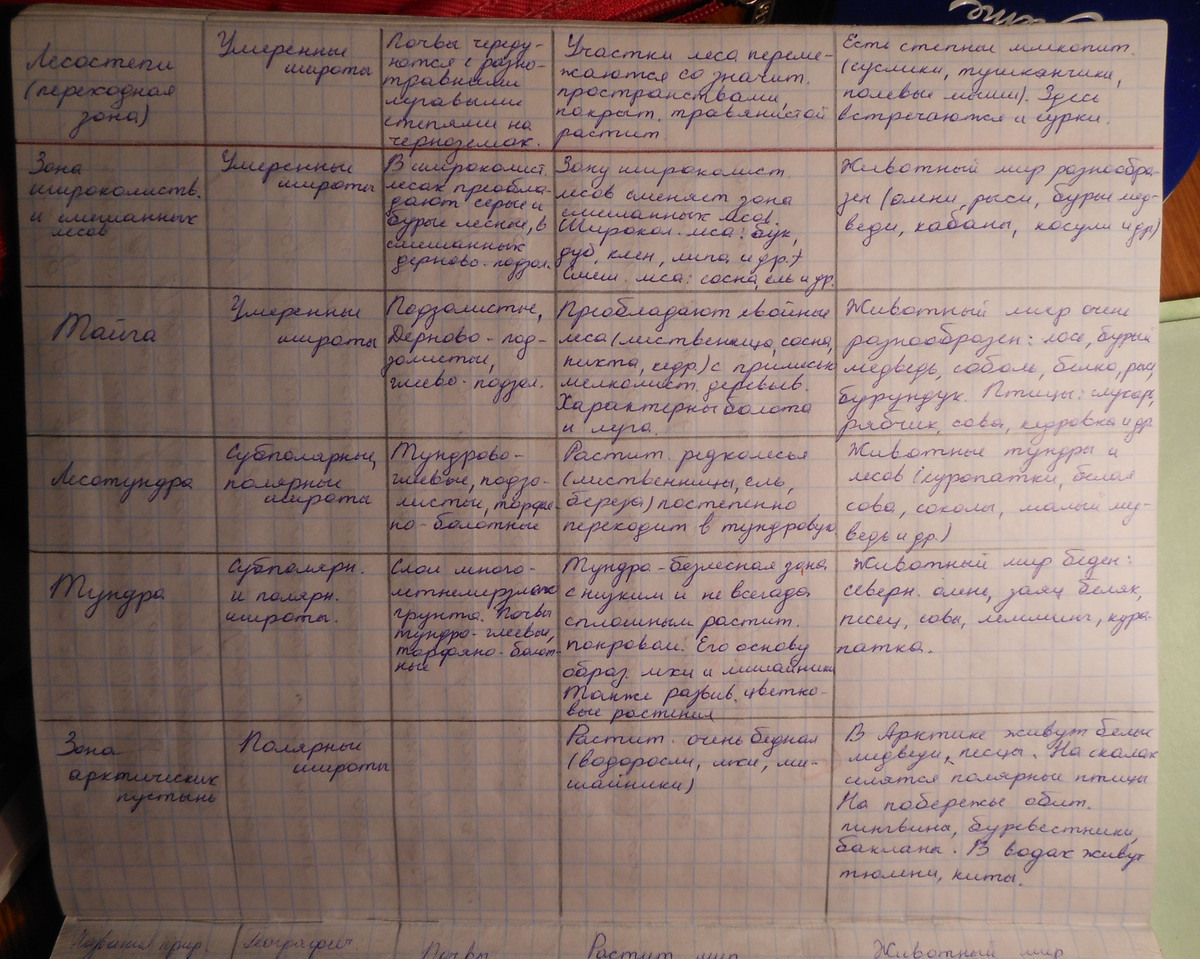 Лесостепи
(переходная
зона)
Умеренные
широты
Почвы череду-
ются с разно-
травными
луговыми
степями на
черноземах.
Участки леса переме-
жаются со значит.
пространствами,
покрыт. травянистой
растит.
Есть степные млекопит.
(суслики, тушканчики,
полевые мыши). Здесь
встречаются и сурки.
Зона
широколиств.
и смешанных
лесов
Умеренные
широты
В широколист.
лесах преобла-
дают серые и
бурые лесные, в
смешанных
дерново-подзол.
Зону широколист.
лесов сменяет зона
смешанных лесов.
Широкол. леса: бук,
дуб, клен, липа и др.)
Смеш. леса: сосна, ель и др.
Животный мир разнообра-
зен (олени, рыси, бурые мед-
веди, кабаны, косули и др)
Тайга
Умеренные
широты
Подзолистые,
Дерново-под-
золистые,
глево-подзол.
Преобладают хвойные
леса (лиственница, сосна,
пихта, кедр.) с примесью
мелколист. деревьев.
Характерны болота
и луга.
Животный мир очень
разнообразен: лось, бурый
медведь, соболь, белка, рысь,
бурундук. Птицы: глухарь,
рябчик, сова, кедровка и др
Лесотундра
Субполярные,
полярные
широты
Тундрово-
глеевые, подзо-
листые, торфя-
но-болотные
Растит. редколесья
(лиственницы, ель,
береза) постепенно
переходит в тундровую
Животные тундры и
лесов (куропатки, белая
сова, соколы, малый мед-
ведь и др.)
Тундра
Субполярн.
и полярн.
широты.
Слои много-
летнемерзлого
грунта. Почвы
тундро-глеевые,
торфяно-болот-
ные
Тундра-безлесная зона
с низким и не всегда
сплошным растит.
покровом. Его основу
образ. мхи и лишайники
Также развив. цветко-
вые растения
Животный мир беден:
северн. олень, заяц беляк,
песец, совы, лемминг, куро-
патка.
Зона
арктических
пустынь
Полярные
широты
Растит. очень бедная
(водоросли, мхи, ли-
шайники)
В Арктике живут белые
медведи, песцы. На скалах
селятся полярные птицы
На побережье обит.
пингвины, буревестники,
бакланы. В водах живут
тюлени, киты.
Названия прир.
Географич.
Почвы
Растит. мир
Животный мир